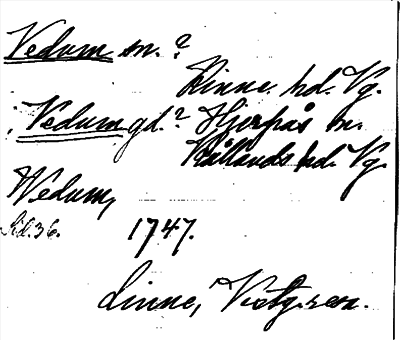 Vedum sn.?
Linne hd. Vg.
Vedum gd.? Hjerpås sn.
Kållands hd. Vg.
Wedum,
Sid. 36. 1747.
Linne, Västg. resa.